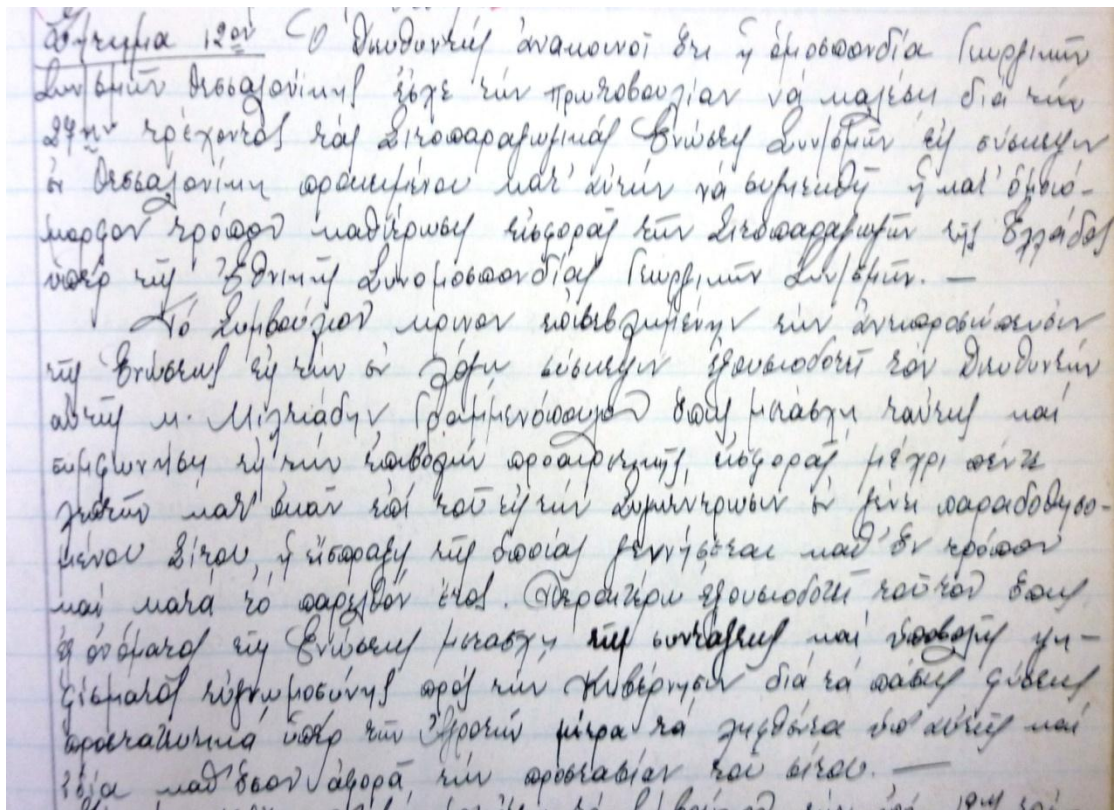 Ζήτημα 12ον Ὁ Διευθυντής ἀνακοινοῖ ὅτι ἡ ὁμοσπονδία Γεωργικῶν
Συν/σμῶν Θεσσαλονίκης ἔσχε τήν πρωτοβουλίαν νά καλέση διά τήν
27ην τρέχοντος τάς Σιτοπαραγωγικάς Ἑνώσεις Συν/σμῶν εἰς σύσκεψιν
ἐν Θεσσαλονίκη προκειμένου κατ' αὐτήν νά συζητηθῆ ἡ κατ' ὁμοιό-
μορφον τρόπον καθιέρωσις εἰσφορᾶς τῶν Σιτοπαραγωγῶν τῆς Ἑλλάδος
ὑπέρ τῆς Ἐθνικῆς Συνομοσπονδίας Γεωργικῶν Συν/σμῶν. —
Τό Συμβούλιον κρῖνον ἐπιβεβλημένην τήν ἀντιπροσώπευσιν
τῆς Ἑνώσεως εἰς τήν ἐν λόγω σύσκεψιν ἐξουσιοδοτεῖ τόν Διευθυντήν
αὐτῆς κ. Μιλτιάδην Γραμμενόπουλον ὅπως μετασχη ταύτης καί
συμφωνήση εἰς τήν ἐπιβολήν προαιρετικῆς εἰσφορᾶς μέχρι πέντε
λεπτῶν κατ' ὀκᾶν ἐπί τοῦ εἰς τήν Συγκέντρωσιν ἐν γένει παραδοθησο-
μένου Σίτου, ἡ εἴσπραξις τῆς ὁποίας γεννήσεται καθ' ὅν τρόπον
καί κατά τό παρελθόν ἔτος. Περαιτέρω ἐξουσιοδοτεῖ τοῦτον ὅπως
ἐξ ὀνόματος τῆς Ἑνώσεως μετασχη τῆς συντάξεως καί ὑποβολῆς ψη-
φίσματος εὐγνωμοσύνης πρός τήν Κυβέρνησιν διά τά πάσης φύσεως
προστατευτικά ὑπέρ τῶν Ἀγροτῶν μέτρα τά ληφθέντα ὑπ' αὐτῆς καί
ἰδία καθ' ὅσον ἀφορᾶ τήν προστασίαν τοῦ σίτου. —